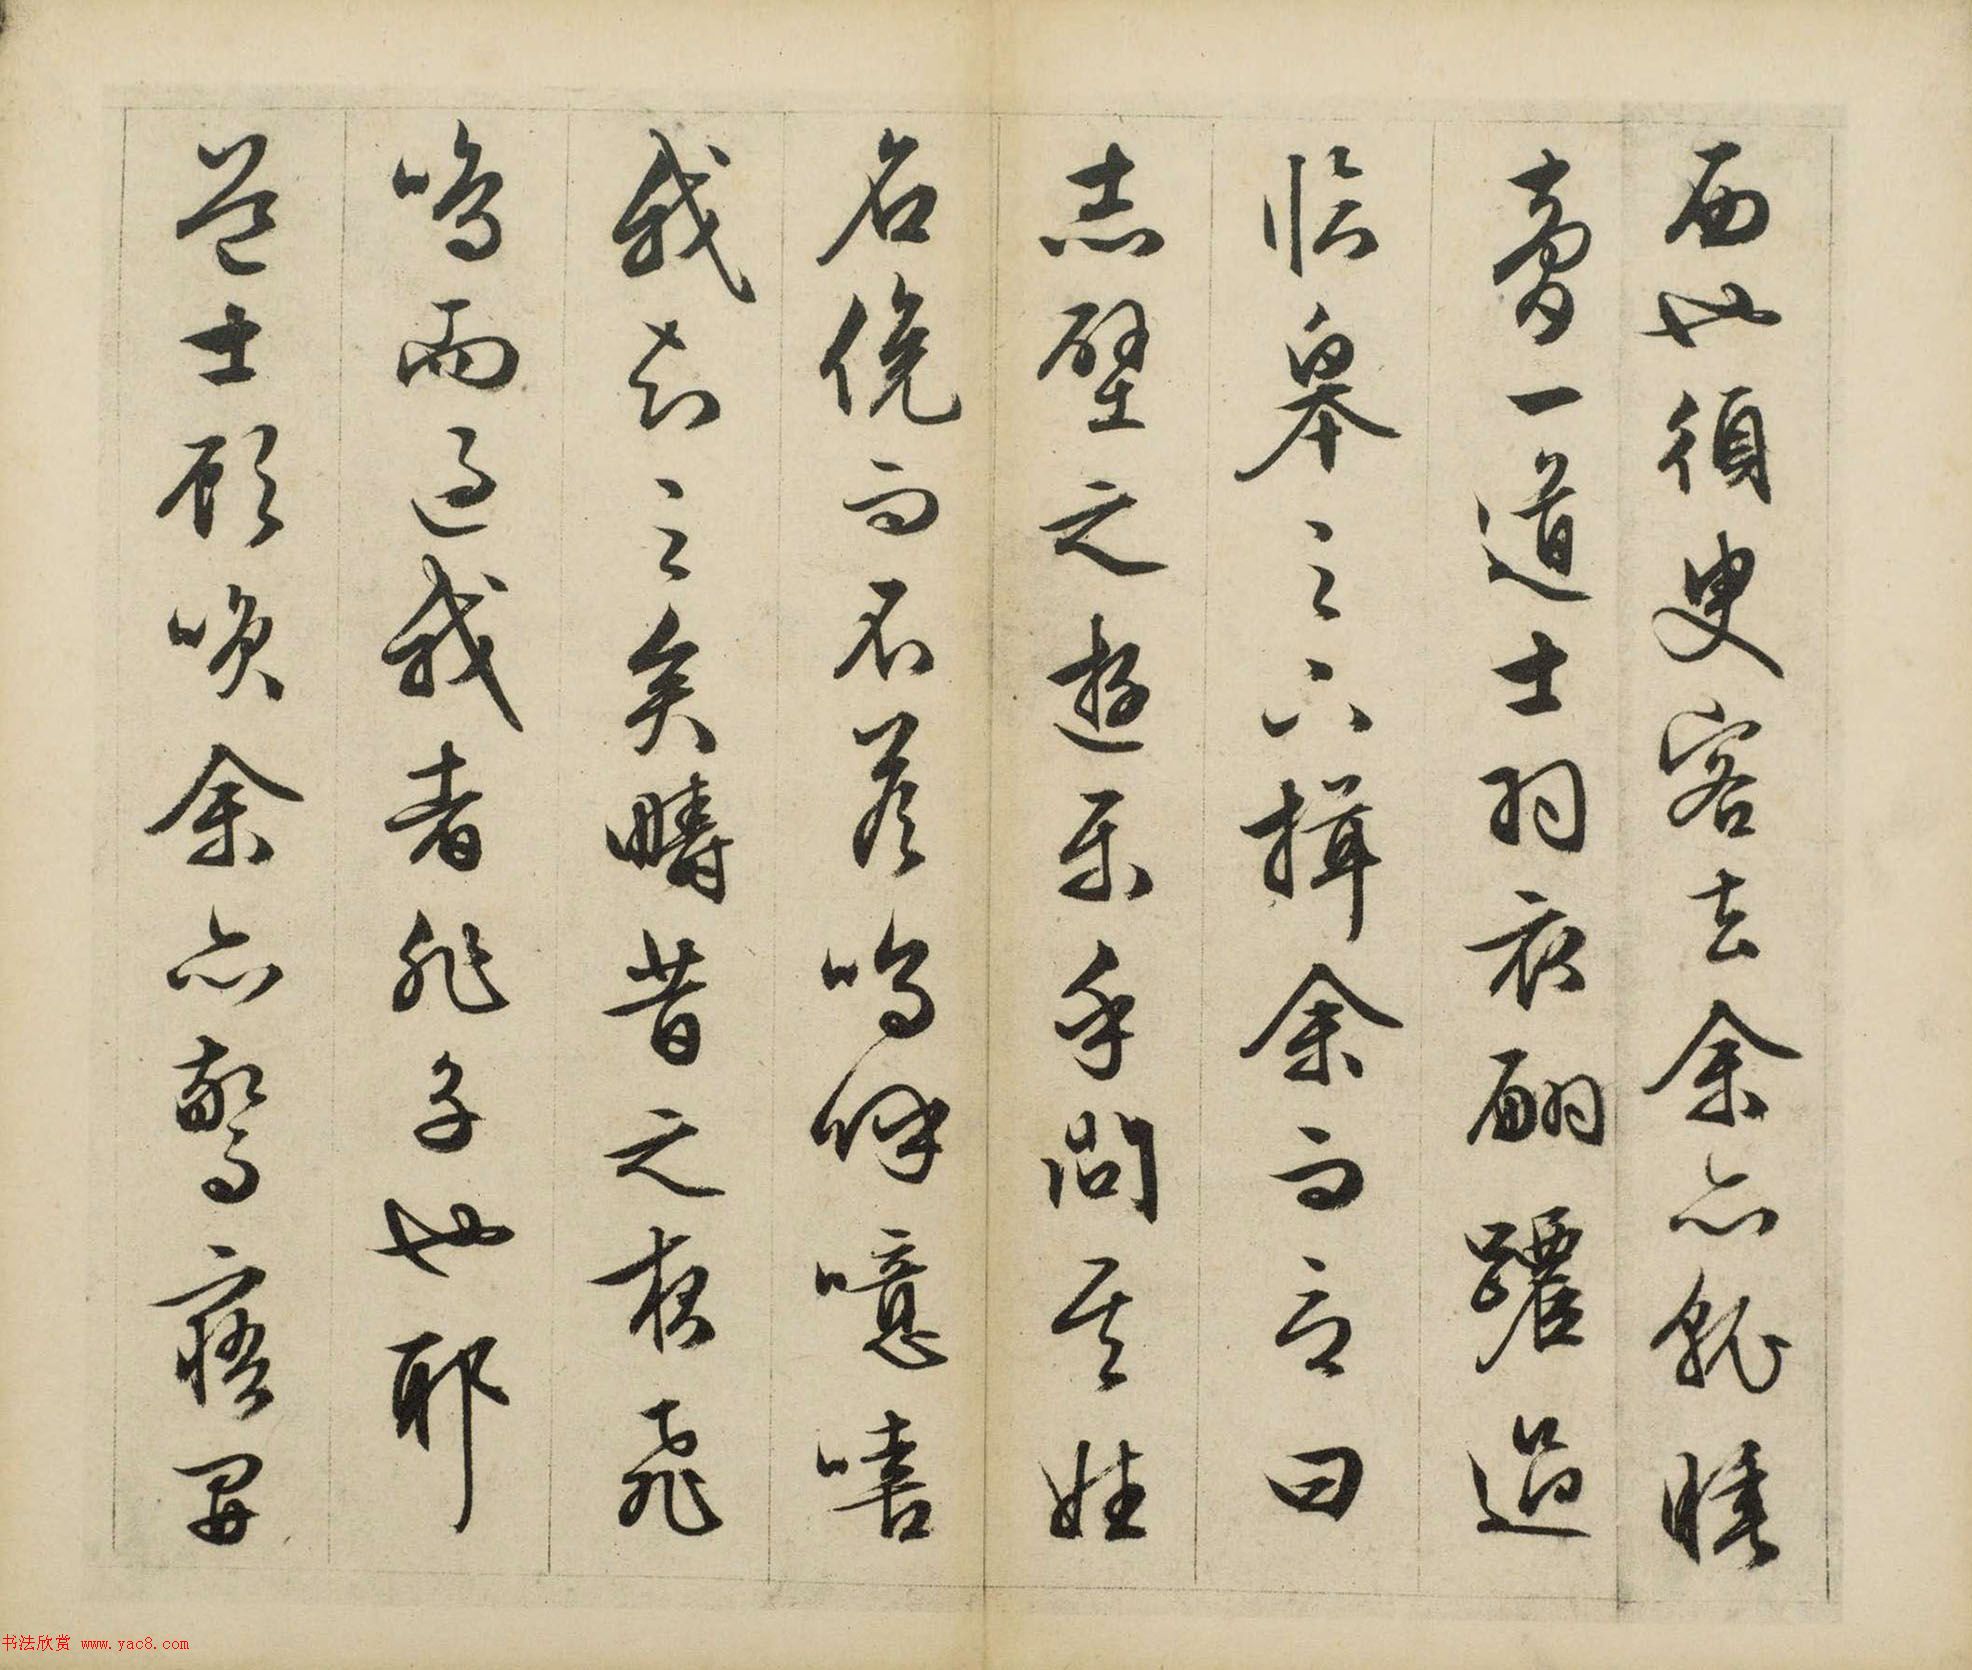 西也須臾客去余亦就睡
夢一道士羽衣翩躚過
臨皋之下揖余而言曰
赤壁之遊樂乎問其姓
名俛而不答嗚呼噫嘻
我知之矣疇昔之夜飛
鳴而過我者非子也耶
道士顧笑余亦驚寤開
书法欣赏 www.yac8.com